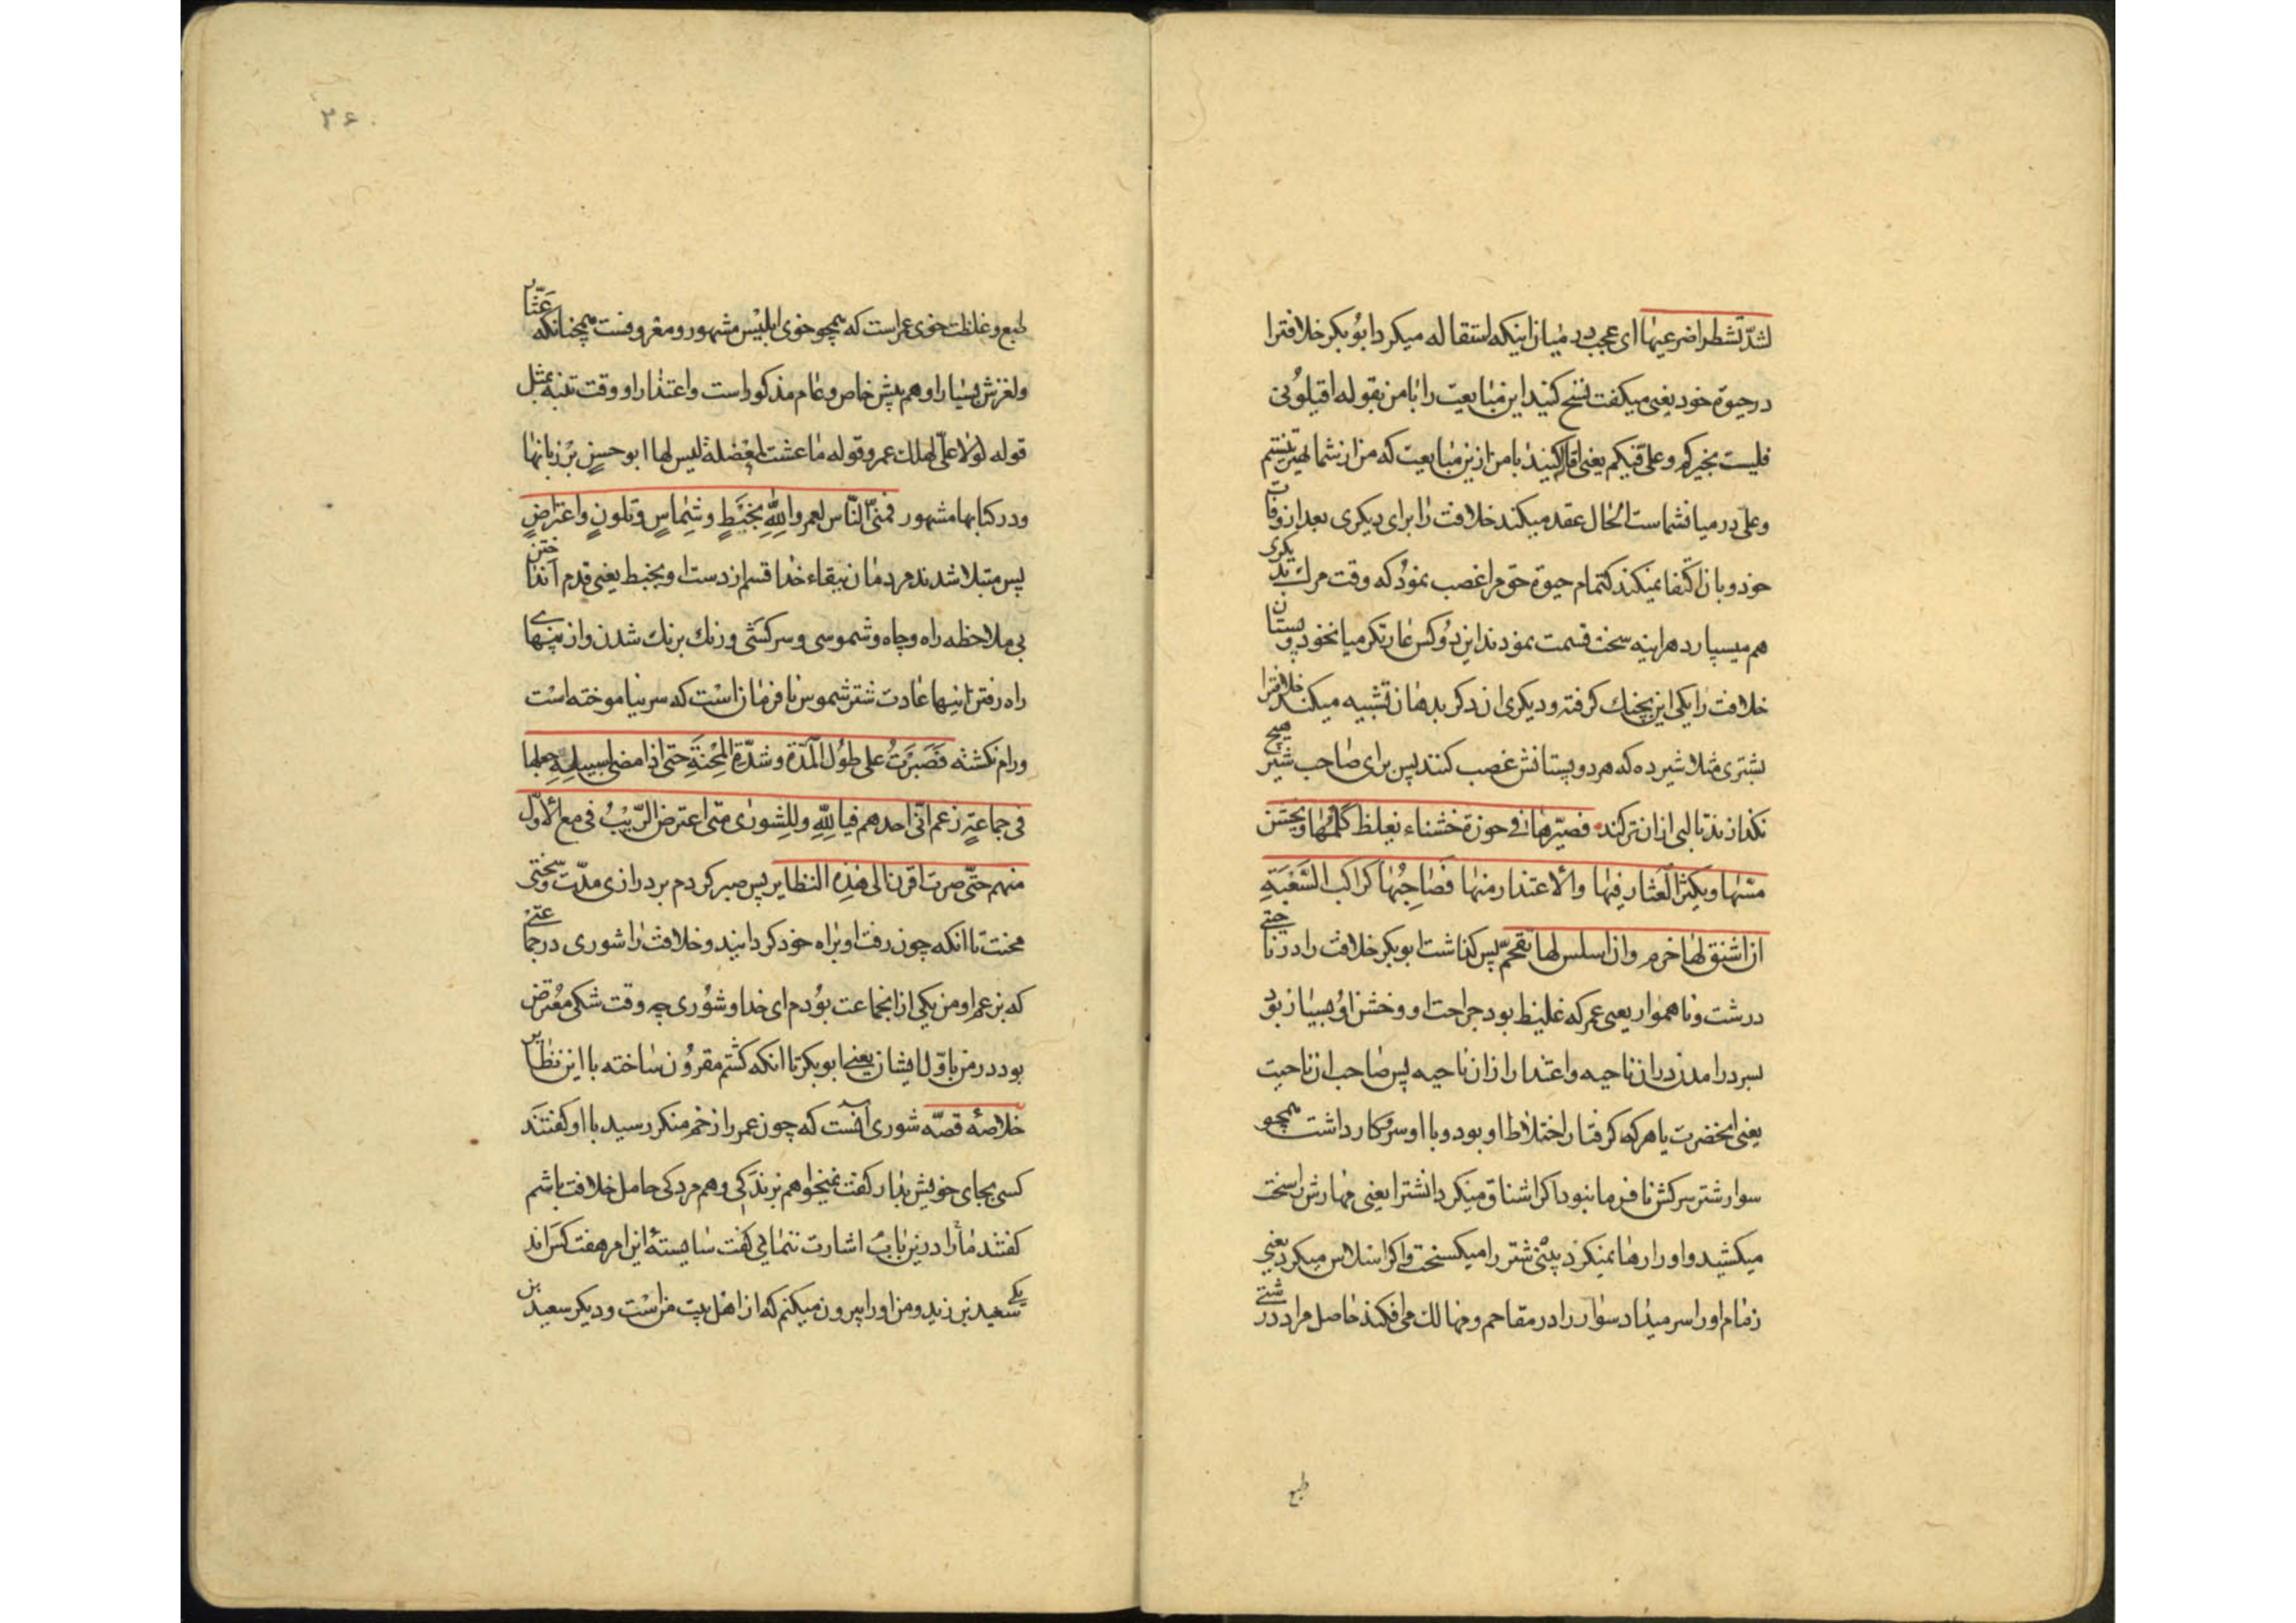 لشدّ تشطرا ضرعیها ای عجب در میان اینکه استقاله میکرد ابوبکر خلافترا
در حیوة خود یعنی میکفت فسخ کنید این مبایعت را با من بقوله اقیلونی
فلیست بخیرکم و علیّ فیکم یعنی اقاله کنید با من ازین مبایعت که من از شما بهتر نیستم
و علی در میانشماست الحال عقد میکند خلافت را برای دیکری بعد از وفات
خود و بان اکتفا نمیکند که تمام حیوة حق مرا غصب نمود که وقت مرك بدیکری
هم میسپارد هراینه سخت قسمت نمودند این دوکس غارتکر میانخود دو پستان
خلافت را یکی این بچنك کرفته و دیکری ان دکر بدهان تشبیه میکند خلافترا
بشتری مثلا شیرده که هر دو پستانش غصب کنند پس برای صاحب شیر هیچ
نکذارند تا لبی از ان تر کند فصیّرها فی حوزة خشناء یغلظ کلمها و یخشن
مسّها و یکثر العثار فیها والاعتذار منها فصاحبها کراکب الصّعبة
ان اشنق لها خرم وان اسلس لها تقحّم پس کذاشت ابوبکر خلافت را در ناحیتی
درشت و ناهموار یعنی عمر که غلیظ بود جراحت او و خشن او و بسیار بود
بسر درامدن در ان ناحیه و اعتذار از ان ناحیه پس صاحب ان ناحیت
یعنی انحضرت یا هر که کرفتار اختلاط او بود و با او سر و کار داشت همچو
سوار شتر سرکش نافرما نبود اکر اشناق میکرد انشترا یعنی مهارش سخت
میکشید و او را رها نمیکرد بینی شتر را میکسیخت و اکر اسلاس میکرد یعنی
زمام او را سر میداد سوار را در مقاحم و مهالك می افکند حاصل مراد درشتی
طبع
۲۶۰
طبع و غلظت خوی عمر است که همچو خوی ابلیس مشهور و معروفست همچنانکه عثار
و لغزش بسیار او هم پیش خاص و عام مذکور است و اعتذار او وقت تنبه بمثل
قوله لولا علیّ لهلك عمر و قوله ما عشت لمعضلة لیس لها ابو حسنٍ بر زبانها
و در کتابها مشهور فمنی النّاس لعمر واللّه بخبطٍ و شماسٍ و تلونٍ و اعتراضٍ
پس مبتلا شدند مردمان ببقاء خدا قسم از دست او بخبط یعنی قدم انداختن
بی ملاحظه راه و چاه و شموسی و سرکشی و رنك برنك شدن و از پهنهای
راه رفتن اینها عادت شتر شموس نافرمان است که سر نیاموخته است
و رام نکشته فصبرت علی طول المدّة و شدّة المحنة حتی اذا مضی لسبیله جعلها
فی جماعةٍ زعم انّی احدهم فیاللّه و للشوری متی اعترض الرّیب فیّ مع الاوّل
منهم حتّی صرت اقرن الی هذه النظایر پس صبر کردم بر درازی مدّت و سختی
محنت تا انکه چون رفت او براه خود کردانید و خلافت را شوری در جماعتی
که بزعم او من یکی از انجماعت بودم ای خدا و شوری چه وقت شکی معترض
بود در من با اوّل ایشان یعنی ابوبکر تا انکه کشتم مقرون ساخته با این نظایر
خلاصهٔ قصّه شوری آنست که چون عمر را زخم منکر رسید با او کفتند
کسی بجای خویش بدار کفت نمیخواهم بزندکی و هم مردکی حامل خلافت باشم
کفتند ما را درین باب اشارت ننمائی کفت شایستهٔ این امر هفت کس اند
یکی سعید بن زید و من او را بیرون میکنم که از اهل بیت من است و دیکر سعید بن